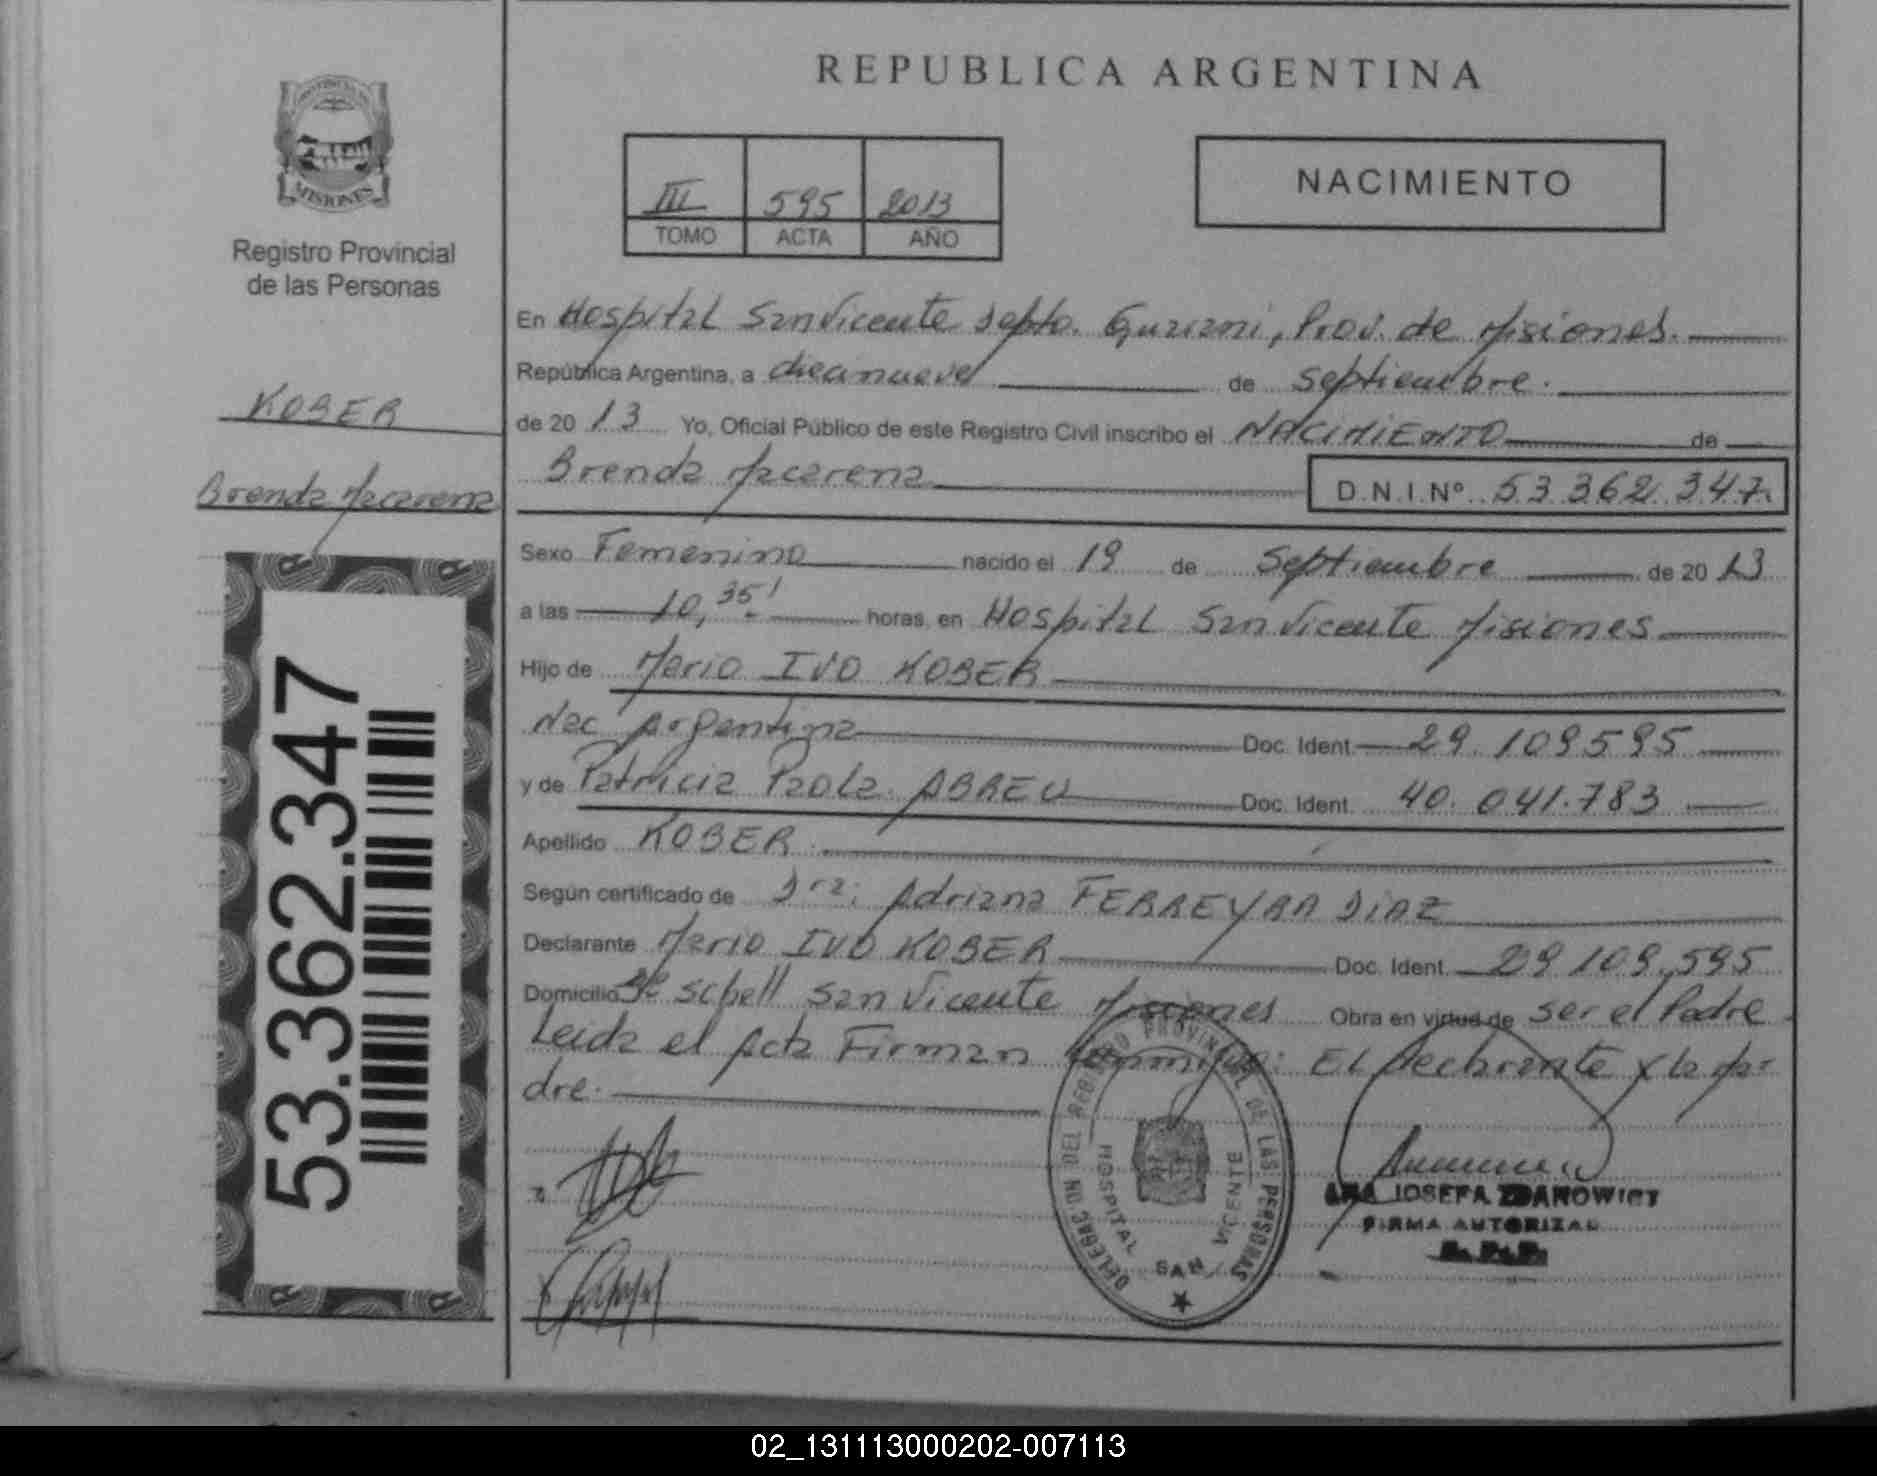 REPUBLICA ARGENTINA
PROVINCIA DE
MISIONES
Registro Provincial
de las Personas
KOBER
Brenda Macarena
53.362.347
III 595 2013
TOMO ACTA AÑO
NACIMIENTO
En Hospital San Vicente Depto. Guarani, Prov. de Misiones.
República Argentina, a diecinueve de Septiembre.
de 20 13 Yo, Oficial Público de este Registro Civil inscribo el NACIMIENTO de
Brenda Macarena D.N.I.Nº 53 362 347.
Sexo Femenino nacido el 19 de Septiembre de 20 13
a las 10,35' horas, en Hospital San Vicente Misiones
Hijo de Mario IVO KOBER
Nac Argentina Doc. Ident. 29 109595
y de Patricia Paola ABREU Doc. Ident. 40.041.783
Apellido KOBER.
Según certificado de Dra: Adriana FERREYRA DIAZ
Declarante Mario IVO KOBER Doc. Ident. 29 109.595
Domicilio Bº Schell San Vicente Misiones Obra en virtud de ser el Padre
Leida el Acta Firman conmigo: El Declarante y la Ma-
dre.
DELEGAC. NO DEL REGISTRO PROVINCIAL DE LAS PERSONAS
HOSPITAL SAN VICENTE
ANA JOSEFA ZDANOWICZ
FIRMA AUTORIZAD
R. P. P.
02_131113000202-007113